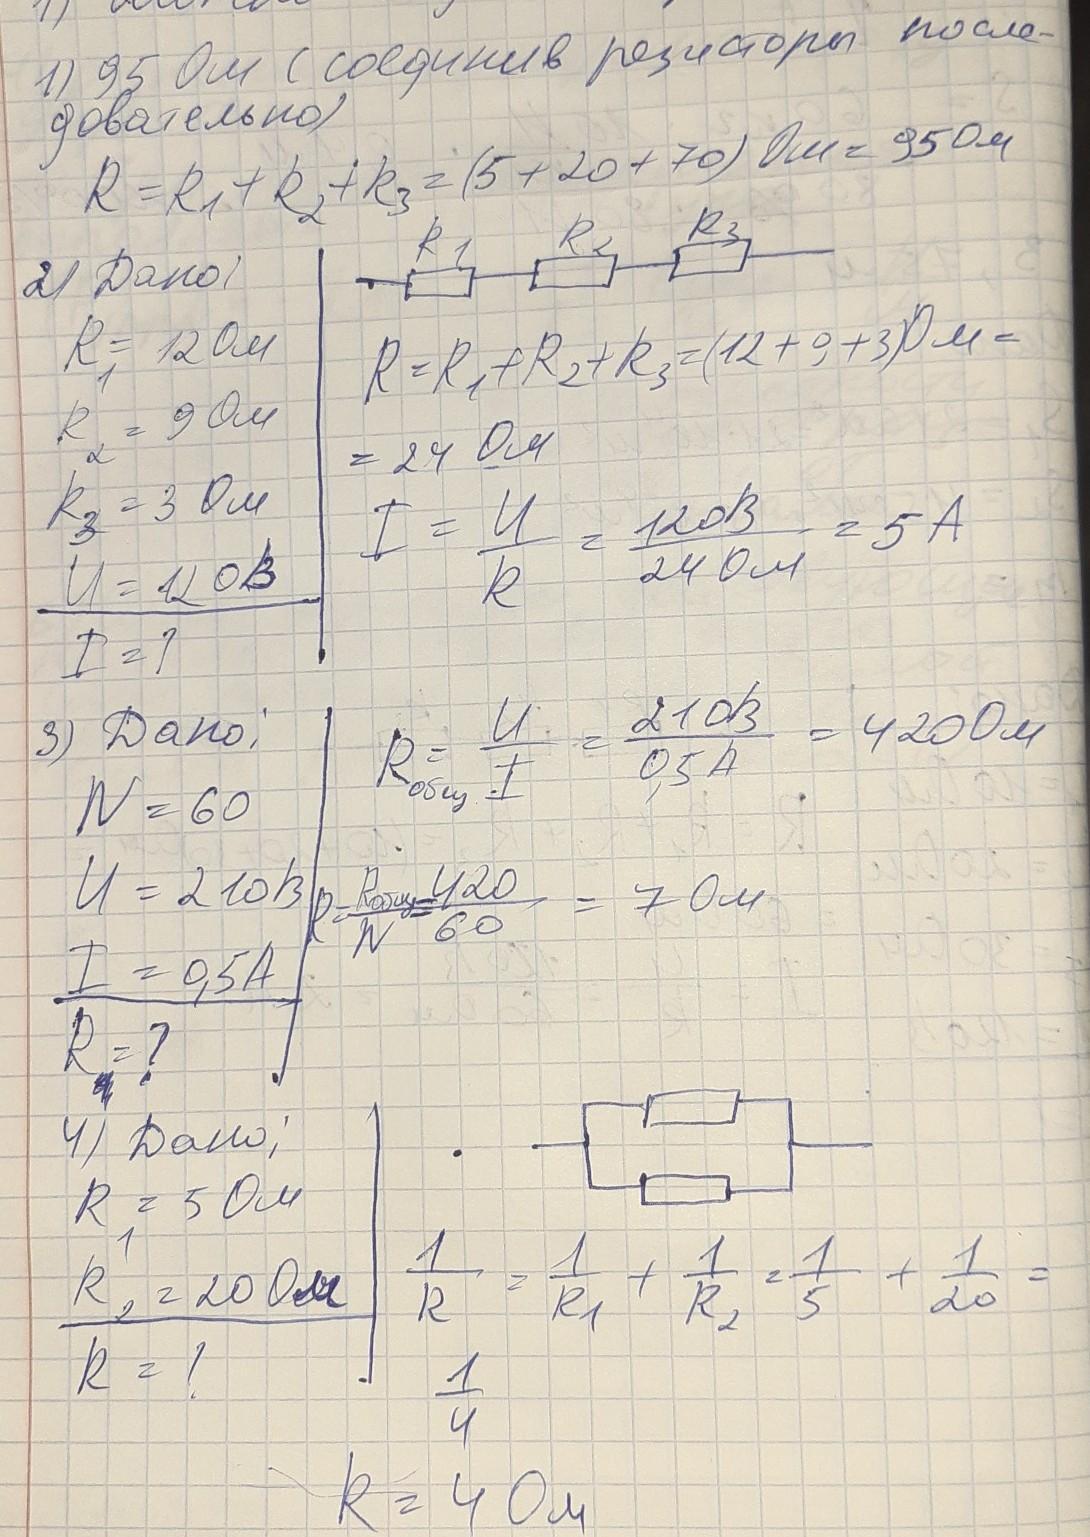 1) 95 Ом (соединив резисторы после-
довательно)
R = R1 + R2 + R3 = (5 + 20 + 70) Ом = 95 Ом
2) Дано:
R1 = 12 Ом
R2 = 9 Ом
R3 = 3 Ом
U = 120В
I = ?
R1 R2 R3
R = R1 + R2 + R3 = (12 + 9 + 3) Ом =
= 24 Ом
I = U/R = 120В/24 Ом = 5 А
3) Дано:
N = 60
U = 210В
I = 0,5А
R = ?
Rобщ = U/I = 210В/0,5А = 420 Ом
R = Rобщ/N = 420/60 = 7 Ом
4) Дано:
R1 = 5 Ом
R2 = 20 Ом
R = ?
1/R = 1/R1 + 1/R2 = 1/5 + 1/20 =
1/4
R = 4 Ом